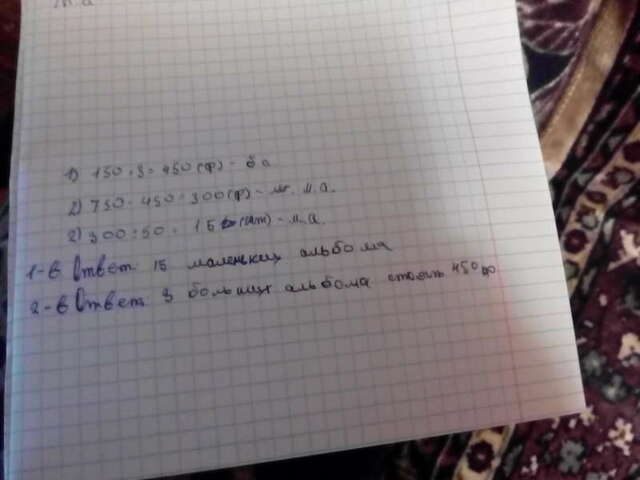 м.а
1) 150·3=450(ф)- б а
2) 750-450=300(ф)- м.а.
2) 300:50= 15 (шт)- м.а.
1-в Ответ 15 маленьких альбома
2-в Ответ 3 больших альбома стоять 450